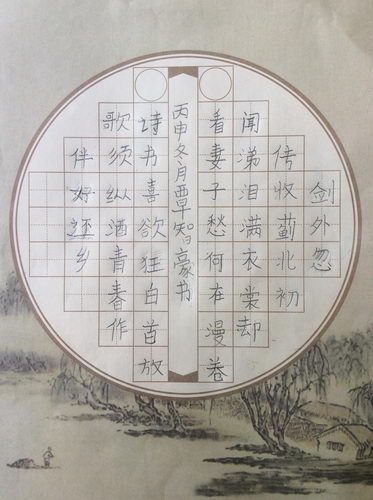 剑外忽
传收蓟北初
闻涕泪满衣裳却
看妻子愁何在漫卷
丙申冬月覃智豪书
诗书喜欲狂白首放
歌须纵酒青春作
伴好还乡